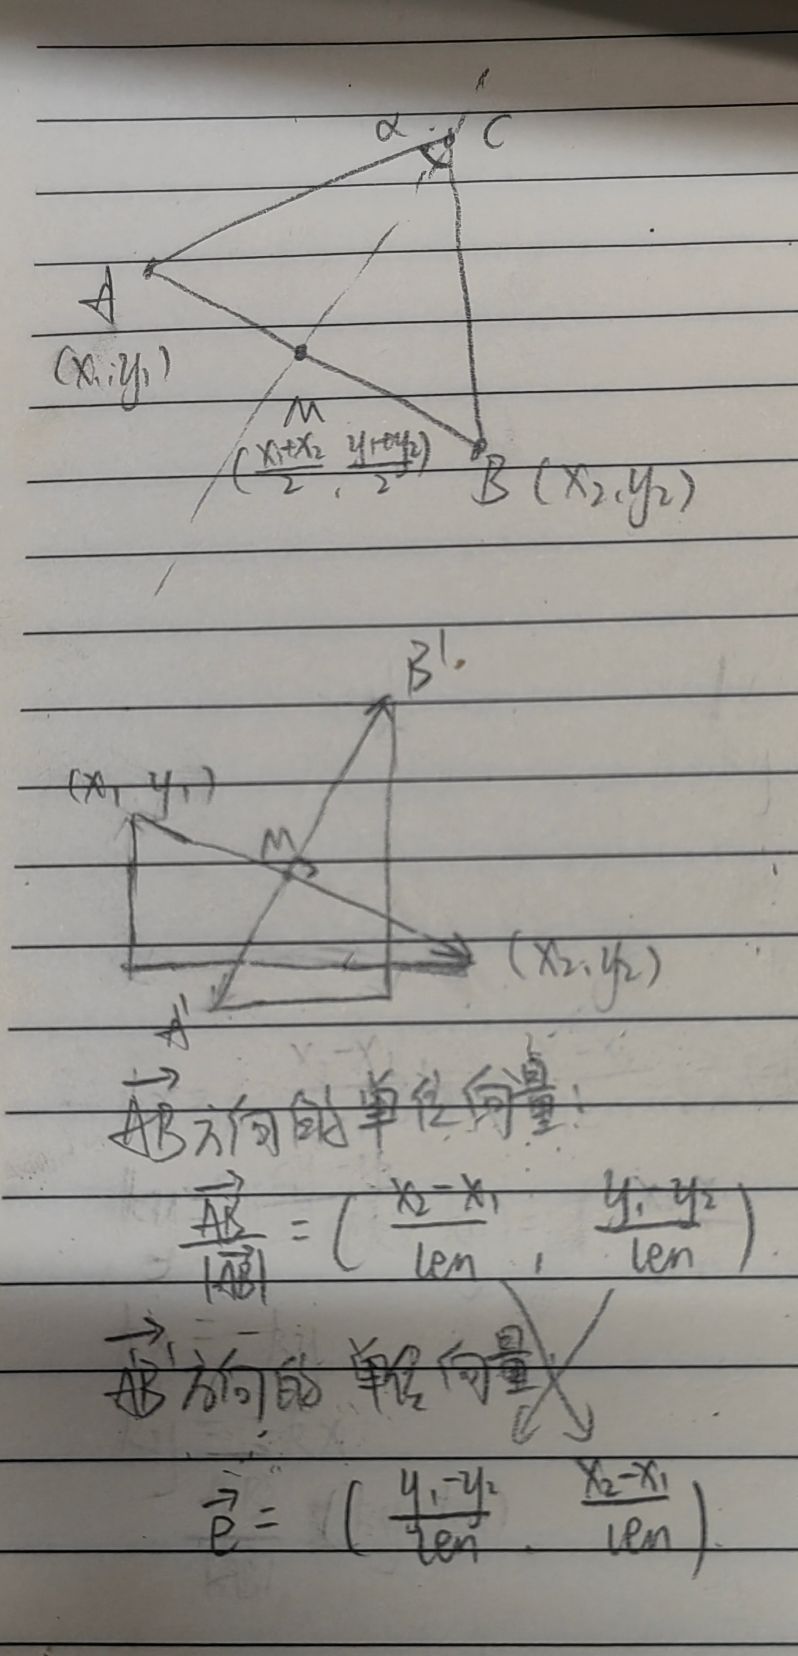 α C
A
(x₁,y₁)
M
(x₁+x₂/2, y₁+y₂/2)
B (x₂,y₂)
B'
(x₁ y₁)
M
(x₂,y₂)
A'
AB方向的单位向量:
AB/|AB| = (x₂-x₁/len, y₁-y₂/len)
A'B'方向的单位向量
e = (y₁-y₂/len, x₂-x₁/len)